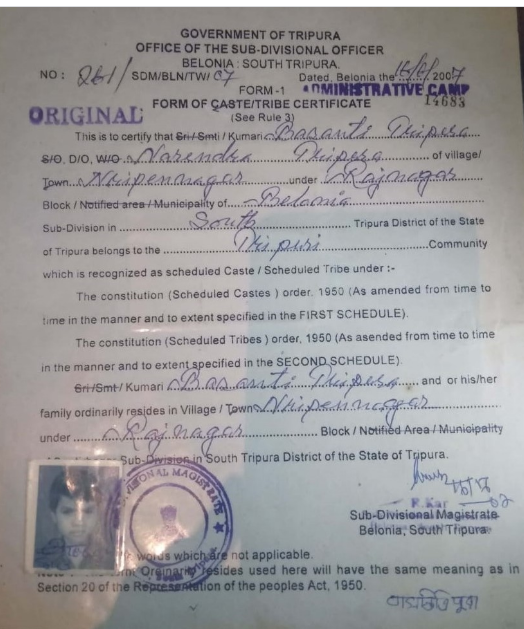 GOVERNMENT OF TRIPURA
OFFICE OF THE SUB-DIVISIONAL OFFICER
BELONIA : SOUTH TRIPURA.
NO : 261/ SDM/BLN/TW/ 07 Dated, Belonia the 2007
FORM -1 ADMINISTRATIVE CAMP
ORIGINAL FORM OF CASTE/TRIBE CERTIFICATE 14683
(See Rule 3)
This is to certify that Sri / Smti / Kumari Basanti Tripura
S/O. D/O, W/O Narendra Tripura of village/
Town Nripennagar under Rajnagar
Block / Notified area / Municipality of Belonia
Sub-Division in South Tripura District of the State
of Tripura belongs to the Tripuri Community
which is recognized as scheduled Caste / Scheduled Tribe under :-
The constitution (Scheduled Castes ) order, 1950 (As amended from time to
time in the manner and to extent specified in the FIRST SCHEDULE).
The constitution (Scheduled Tribes ) order, 1950 (As asended from time to time
in the manner and to extent specified in the SECOND SCHEDULE).
Sri /Smt/ Kumari Basanti Tripura and or his/her
family ordinarily resides in Village / Town Nripennagar
under Rajnagar Block / Notified Area / Municipality
Sub-Division in South Tripura District of the State of Tripura.
R. Kar
Sub-Divisional Magistrate
Belonia, South Tripura
words which are not applicable.
Ordinarily resides used here will have the same meaning as in
Section 20 of the Representation of the peoples Act, 1950.